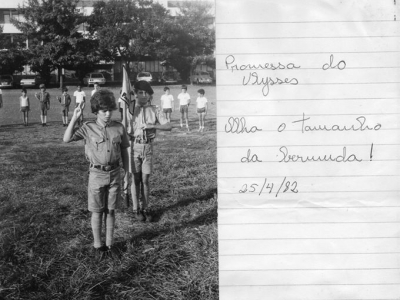 Promessa do
Ulysses
Olha o tamanho
da bermuda !
25/4/82